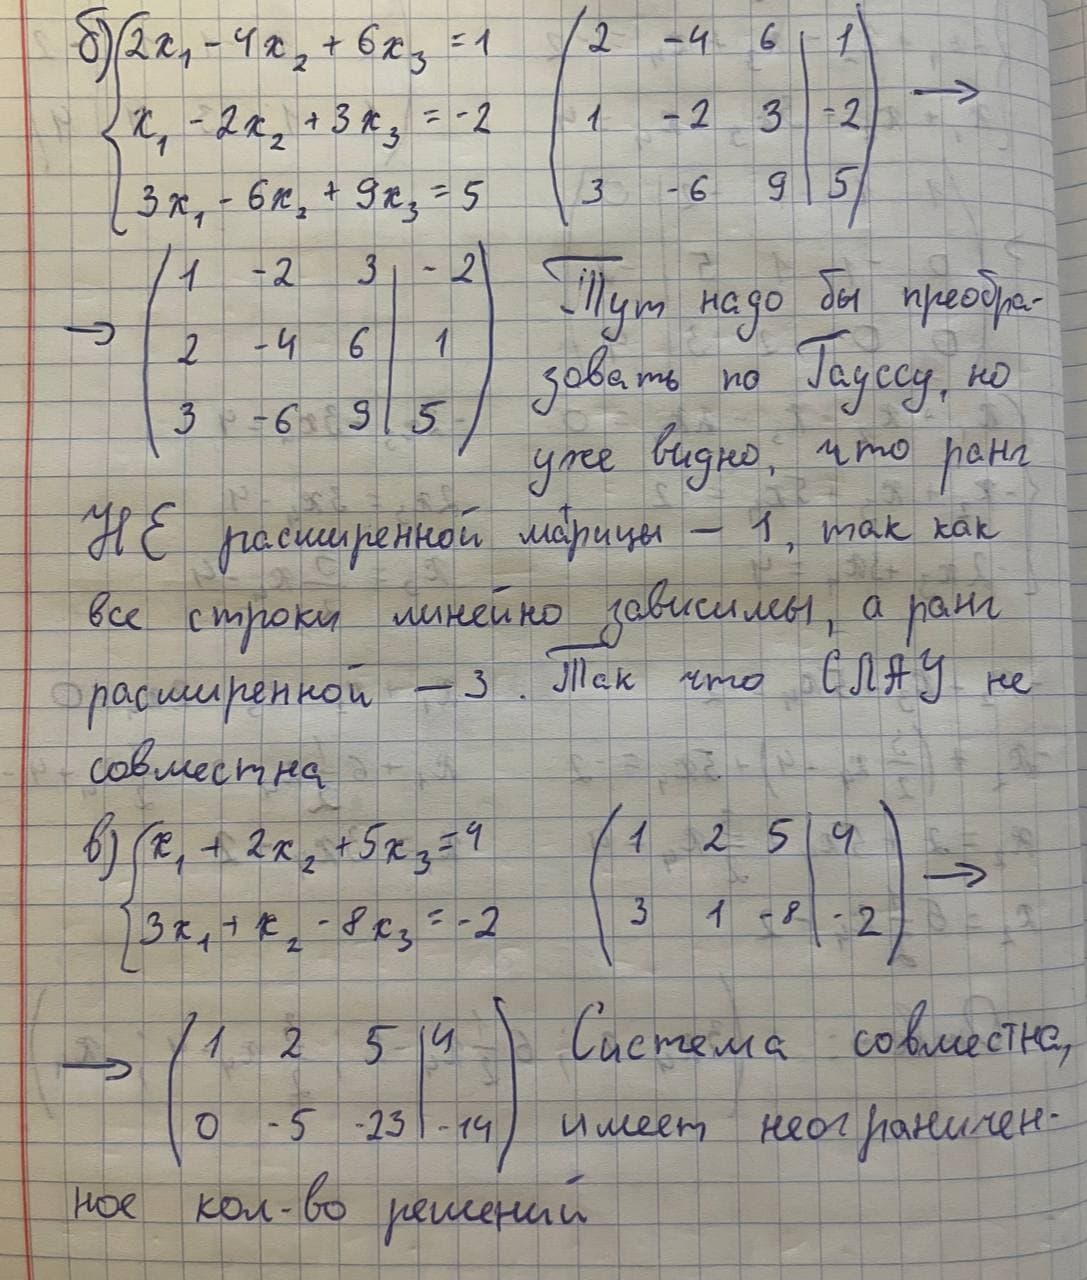 б) { 2x₁ - 4x₂ + 6x₃ = 1 ( 2 -4 6 | 1 )
x₁ - 2x₂ + 3x₃ = -2 ( 1 -2 3 | -2 ) →
3x₁ - 6x₂ + 9x₃ = 5 ( 3 -6 9 | 5 )
( 1 -2 3 | -2 ) Тут надо бы преобра-
→ ( 2 -4 6 | 1 ) зовать по Гауссу, но
( 3 -6 9 | 5 ) уже видно, что ранг
НЕ расширенной матрицы – 1, так как
все строки линейно зависимы, а ранг
расширенной – 3. Так что СЛАУ не
совместна
в) { x₁ + 2x₂ + 5x₃ = 4 ( 1 2 5 | 4 ) →
3x₁ + x₂ - 8x₃ = -2 ( 3 1 -8 | -2 )
→ ( 1 2 5 | 4 ) Система совместна,
( 0 -5 -23 | -14 ) имеет неограничен-
ное кол-во решений